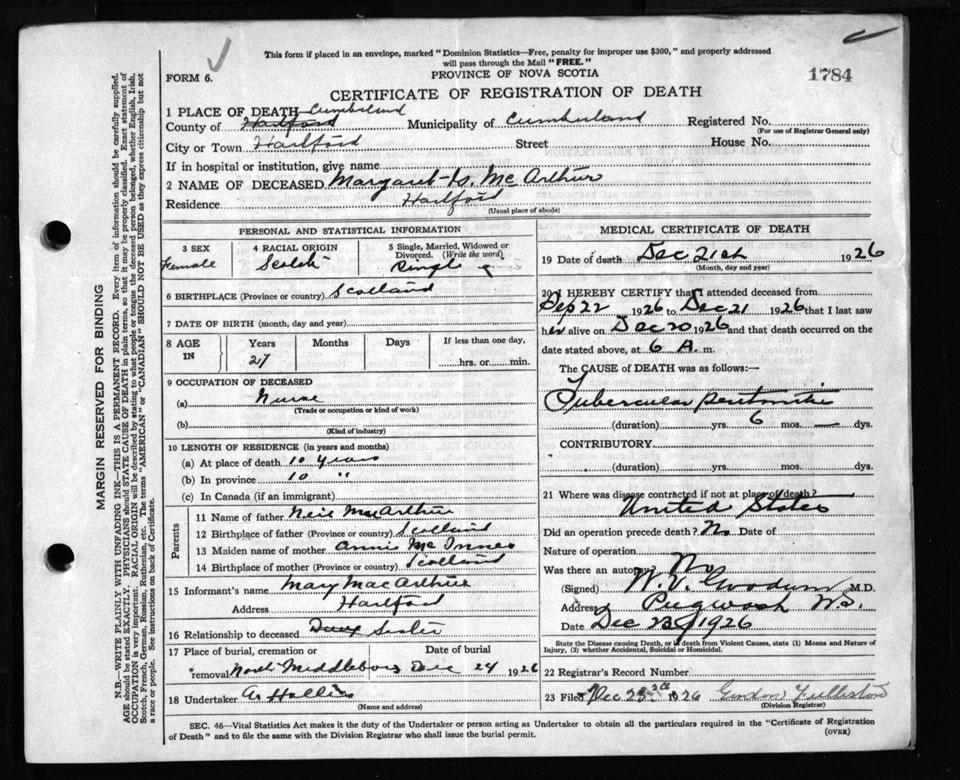 This form if placed in an envelope, marked "Dominion Statistics—Free, penalty for improper use $300," and properly addressed
will pass through the Mail "FREE."
FORM 6.
PROVINCE OF NOVA SCOTIA
1784
CERTIFICATE OF REGISTRATION OF DEATH
1 PLACE OF DEATH Cumberland
County of Hartford Municipality of Cumberland Registered No.
(For use of Registrar General only)
City or Town Hartford Street House No.
If in hospital or institution, give name
2 NAME OF DECEASED Margaret McArthur
Residence Hartford
(Usual place of abode)
PERSONAL AND STATISTICAL INFORMATION
3 SEX 4 RACIAL ORIGIN 5 Single, Married, Widowed or
Divorced. (Write the word)
Female Scotch Single
6 BIRTHPLACE (Province or country) Scotland
7 DATE OF BIRTH (month, day and year)
8 AGE IN Years Months Days If less than one day,
27 hrs. or min.
9 OCCUPATION OF DECEASED
(a) Nurse
(Trade or occupation or kind of work)
(b)
(Kind of industry)
10 LENGTH OF RESIDENCE (in years and months)
(a) At place of death 10 years
(b) In province 10 "
(c) In Canada (if an immigrant)
Parents
11 Name of father Neil MacArthur
12 Birthplace of father (Province or country) Scotland
13 Maiden name of mother Annie McInnes
14 Birthplace of mother (Province or country) Scotland
15 Informant's name Mary MacArthur
Address Hartford
16 Relationship to deceased Sister
17 Place of burial, cremation or Date of burial
removal North Middleboro Dec 24 1926
18 Undertaker Hollis
(Name and address)
MEDICAL CERTIFICATE OF DEATH
19 Date of death Dec 21st 1926
(Month, day and year)
20 I HEREBY CERTIFY that I attended deceased from
Sep 22 1926 to Dec 21 1926 that I last saw
her alive on Dec 20 1926 and that death occurred on
date stated above, at 6 A. m.
The CAUSE OF DEATH was as follows:—
Tubercular peritonitis
(duration) yrs. 6 mos. — dys.
CONTRIBUTORY
(duration) yrs. mos. dys.
21 Where was disease contracted if not at place of death?
United States
Did an operation precede death? No Date of
Nature of operation
Was there an autopsy? No
(Signed) M.D.
Address Pugwash N.S.
Date Dec 23 1926
State the Disease causing Death, or in death from Violent Causes, state (1) Means and Nature of
Injury, (2) whether Accidental, Suicidal or Homicidal.
22 Registrar's Record Number
23 Filed Dec 1926 Gordon
(Division Registrar)
SEC. 46—Vital Statistics Act makes it the duty of the Undertaker or person acting as Undertaker to obtain all the particulars required in the "Certificate of Registration
of Death" and to file the same with the Division Registrar who shall issue the burial permit.
(OVER)
MARGIN RESERVED FOR BINDING
N.B. WRITE PLAINLY WITH UNFADING INK—THIS IS A PERMANENT RECORD. Every item of information should be carefully supplied.
AGE should be stated EXACTLY. PHYSICIANS should STATE CAUSE OF DEATH in plain terms, so that it may be properly classified. Exact statement of
OCCUPATION is very important. RACIAL ORIGIN will be described by stating to what people or tongue the deceased person belonged, whether English, Irish,
Scotch, French, German, Russian, Ruthenian, etc. The terms "AMERICAN" or "CANADIAN" SHOULD NOT BE USED as they express citizenship but not
a race or people. See instructions on back of Certificate.